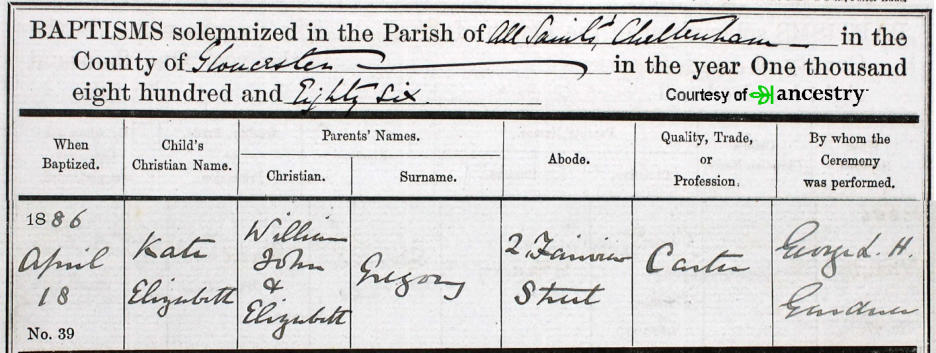 BAPTISMS solemnized in the Parish of All Saints, Cheltenham in the
County of Gloucester in the year One thousand
eight hundred and Eighty six.
Courtesy of ancestry
When Baptized.
Child's Christian Name.
Parents' Names.
Christian.
Surname.
Abode.
Quality, Trade, or Profession.
By whom the Ceremony was performed.
1886
April
18
No. 39
Kate
Elizabeth
William
John
&
Elizabeth
Gregory
2 Fairview
Street
Carter
George L. H.
Gardner